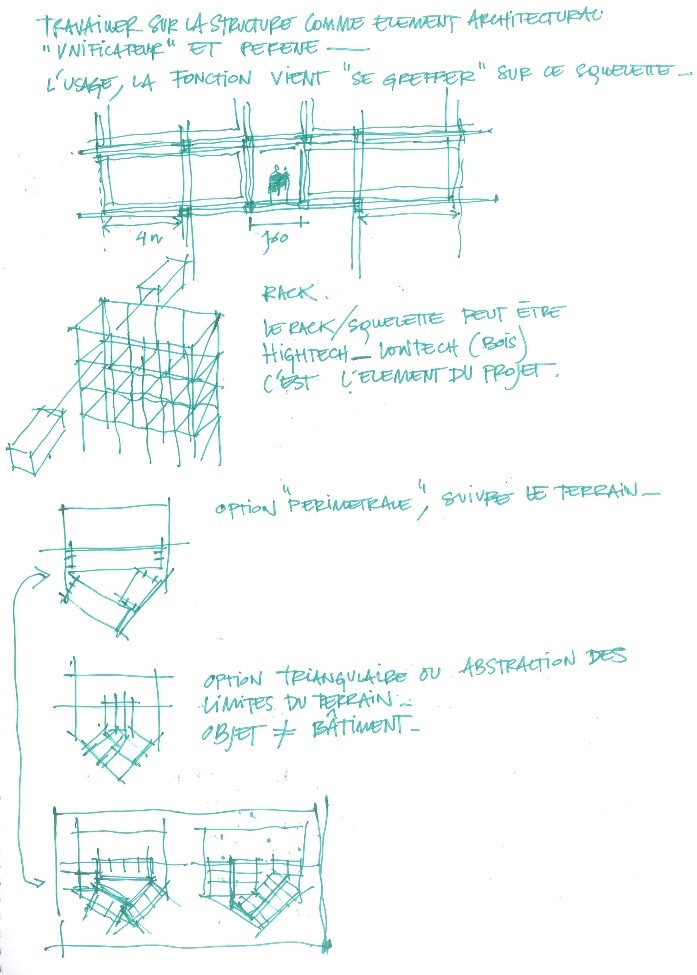 TRAVAILLER SUR LA STRUCTURE COMME ELEMENT ARCHITECTURAL
"UNIFICATEUR" ET PERENE —
L'USAGE, LA FONCTION VIENT "SE GREFFER" SUR CE SQUELETTE —
4m
160
RACK.
LE RACK/SQUELETTE PEUT ÊTRE
HIGHTECH — LOWTECH (BOIS)
C'EST L'ELEMENT DU PROJET.
OPTION "PERIMETRALE", SUIVRE LE TERRAIN —
OPTION TRIANGULAIRE OU ABSTRACTION DES
LIMITES DU TERRAIN —
OBJET ≠ BÂTIMENT —